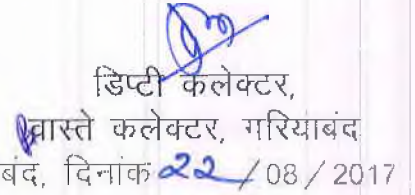 डिप्टी कलेक्टर,
वास्ते कलेक्टर, गरियाबंद
बंद, दिनांक 22/08/2017